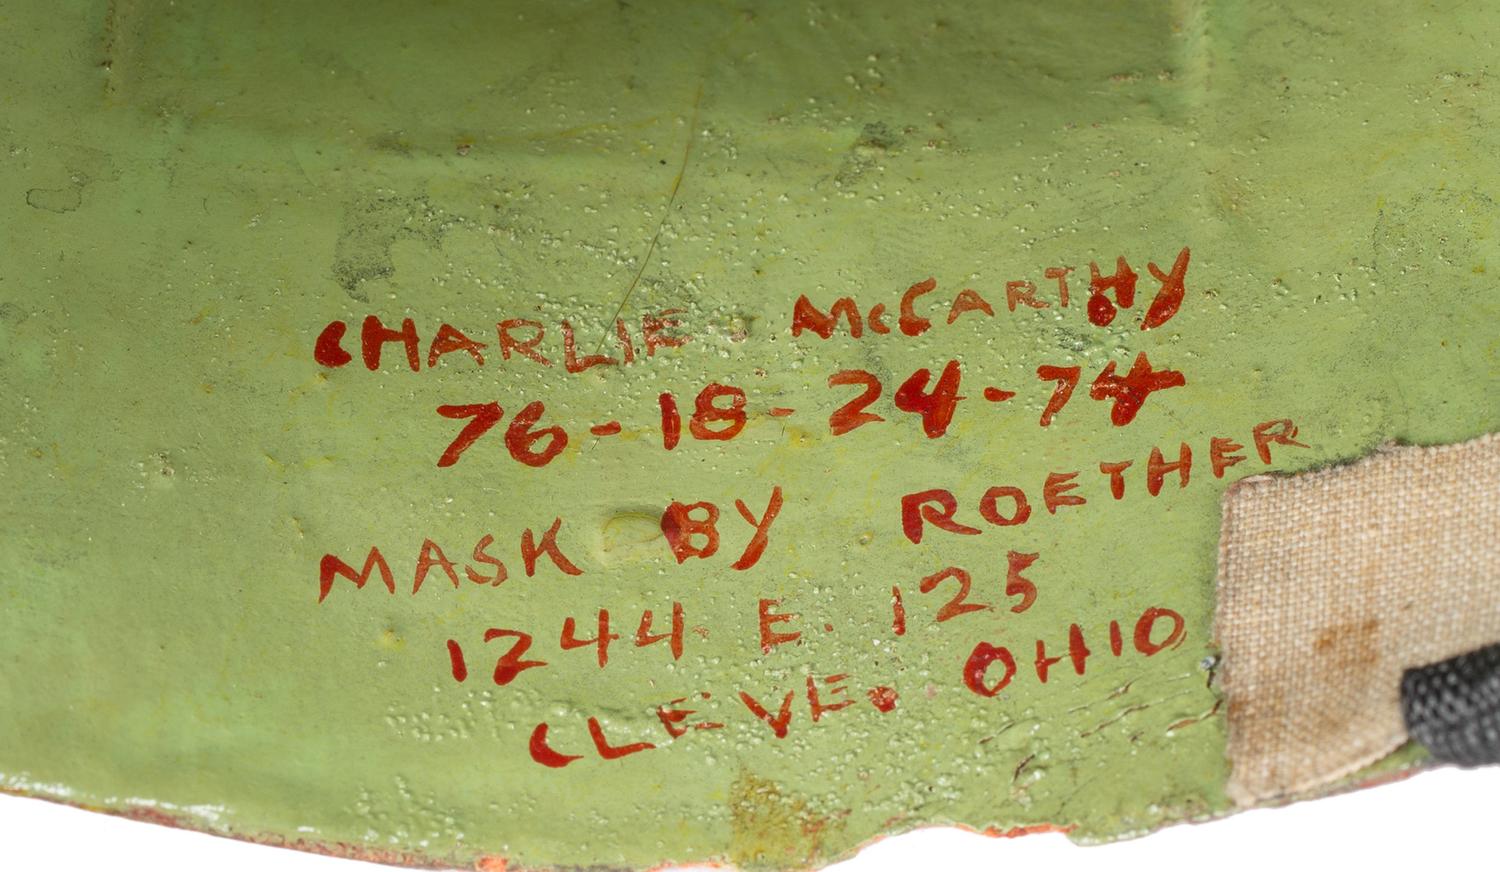 CHARLIE McCARTHY
76-18-24-74
MASK BY ROETHER
1244 E. 125
CLEVE. OHIO